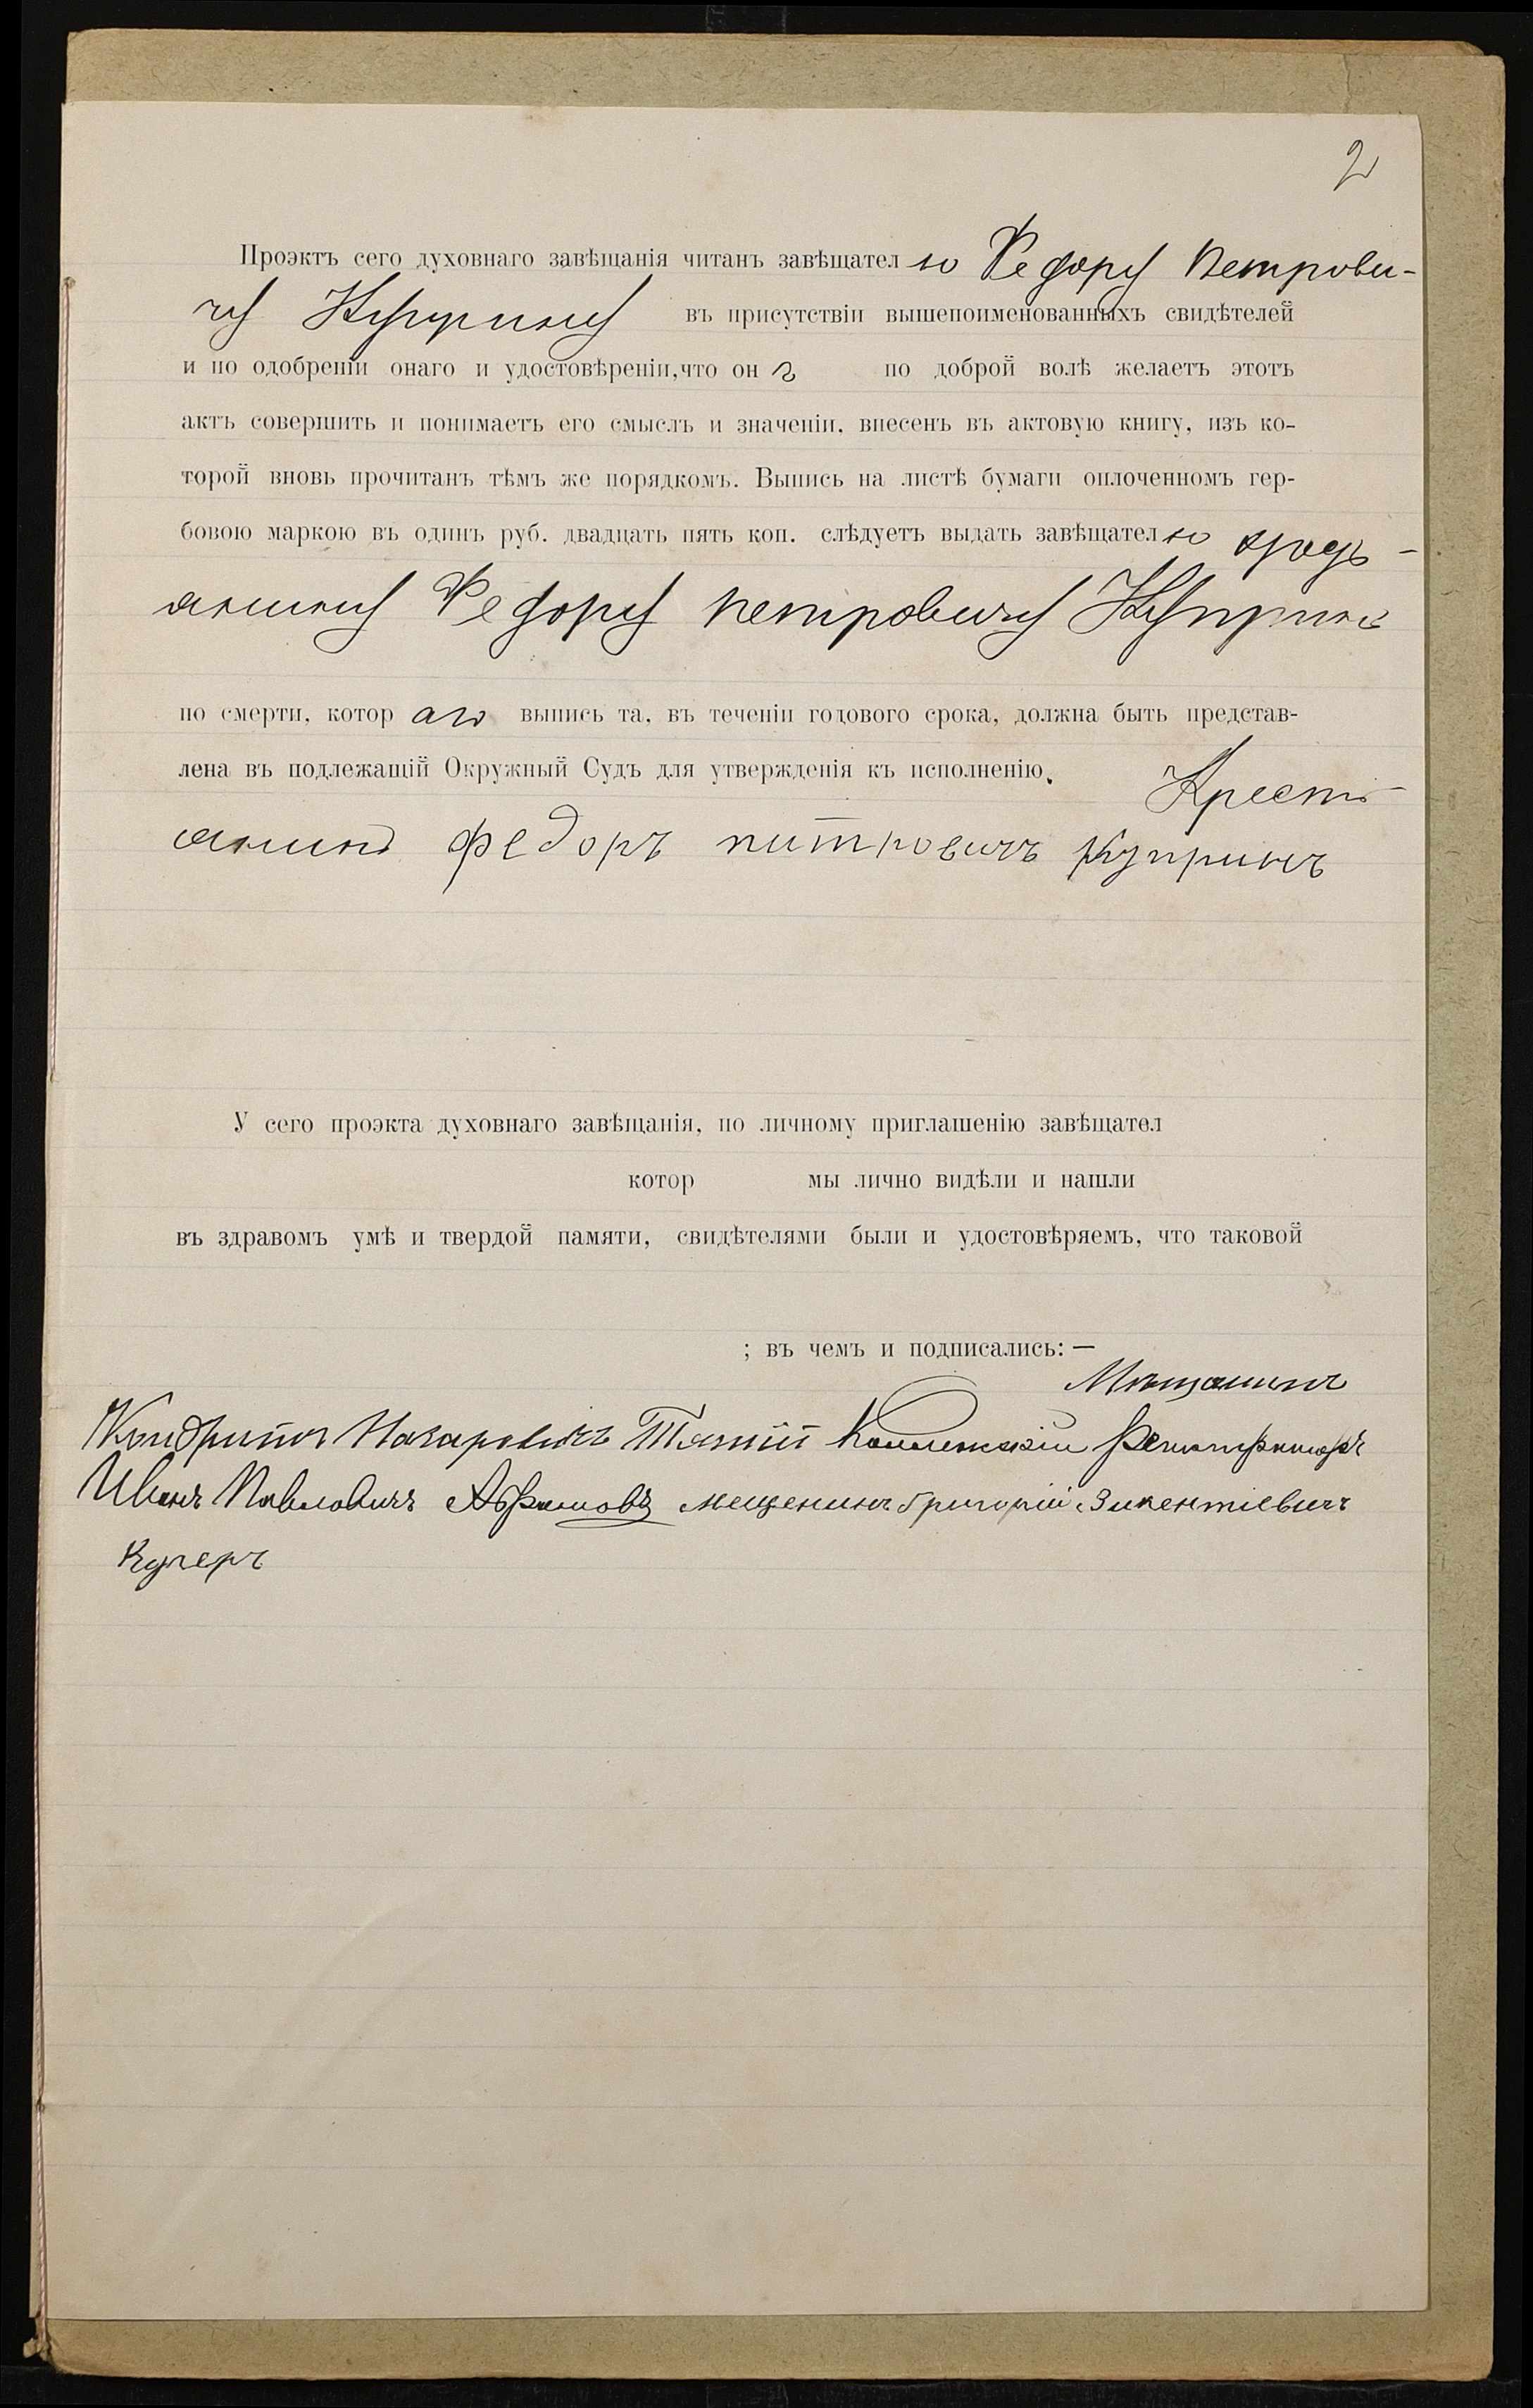 2
Проэктъ сего духовнаго завѣщанія читанъ завѣщател ю Федору Петрови-
чу Куприну въ присутствіи вышепоименованныхъ свидѣтелей
и по одобреніи онаго и удостовѣреніи, что он ъ по доброй волѣ желаетъ этотъ
актъ совершить и понимаетъ его смыслъ и значеніи, внесенъ въ актовую книгу, изъ ко-
торой вновь прочитанъ тѣмъ же порядкомъ. Выпись на листѣ бумаги оплоченномъ гер-
бовою маркою въ одинъ руб. двадцать пять коп. слѣдуетъ выдать завѣщател ю
Федору Петровичу
по смерти, котор аго выпись та, въ теченіи годового срока, должна быть представ-
лена въ подлежащій Окружный Судъ для утвержденія къ исполненію. Кресть-
янинъ Федоръ питровичъ Купринъ
У сего проэкта духовнаго завѣщанія, по личному приглашенію завѣщател
котор мы лично видѣли и нашли
въ здравомъ умѣ и твердой памяти, свидѣтелями были и удостовѣряемъ, что таковой
; въ чемъ и подписались: —
Мѣщанинъ
Кондратъ Назаровичъ Коллежскій Регистраторъ
Иванъ Павловичъ Абрамовъ мещенинъ Григорій Викентіевичъ
Кучеръ